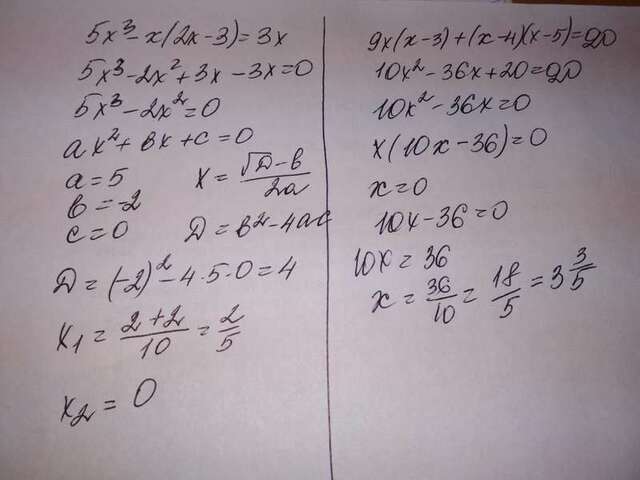 5x³ - x(2x-3) = 3x
5x³ - 2x² + 3x - 3x = 0
5x³ - 2x² = 0
ax² + bx + c = 0
a = 5
b = -2
c = 0
x = (√D - b)/2a
D = b² - 4ac
D = (-2)² - 4·5·0 = 4
x₁ = (2+2)/10 = 2/5
x₂ = 0
9x(x-3) + (x-4)(x-5) = 20
10x² - 36x + 20 = 20
10x² - 36x = 0
x(10x - 36) = 0
x = 0
10x - 36 = 0
10x = 36
x = 36/10 = 18/5 = 3 3/5